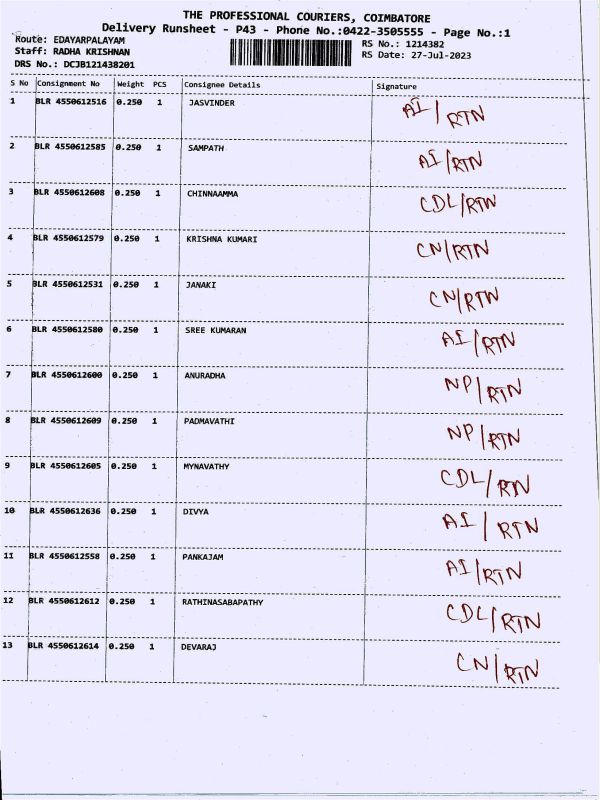 THE PROFESSIONAL COURIERS, COIMBATORE
Delivery Runsheet - P43 - Phone No.:0422-3505555 - Page No.:1
Route: EDAYARPALAYAM RS No.: 1214382
Staff: RADHA KRISHNAN RS Date: 27-Jul-2023
DRS No.: DCJB121438201
S No Consignment No Weight PCS Consignee Details Signature
1 BLR 4550612516 0.250 1 JASVINDER AI/RTN
2 BLR 4550612585 0.250 1 SAMPATH AI/RTN
3 BLR 4550612608 0.250 1 CHINNAAMMA CDL/RTN
4 BLR 4550612579 0.250 1 KRISHNA KUMARI CN/RTN
5 BLR 4550612531 0.250 1 JANAKI CN/RTN
6 BLR 4550612580 0.250 1 SREE KUMARAN AI/RTN
7 BLR 4550612600 0.250 1 ANURADHA NP/RTN
8 BLR 4550612609 0.250 1 PADMAVATHI NP/RTN
9 BLR 4550612605 0.250 1 MYNAVATHY CDL/RTN
10 BLR 4550612636 0.250 1 DIVYA AI/RTN
11 BLR 4550612558 0.250 1 PANKAJAM AI/RTN
12 BLR 4550612612 0.250 1 RATHINASABAPATHY CDL/RTN
13 BLR 4550612614 0.250 1 DEVARAJ CN/RTN